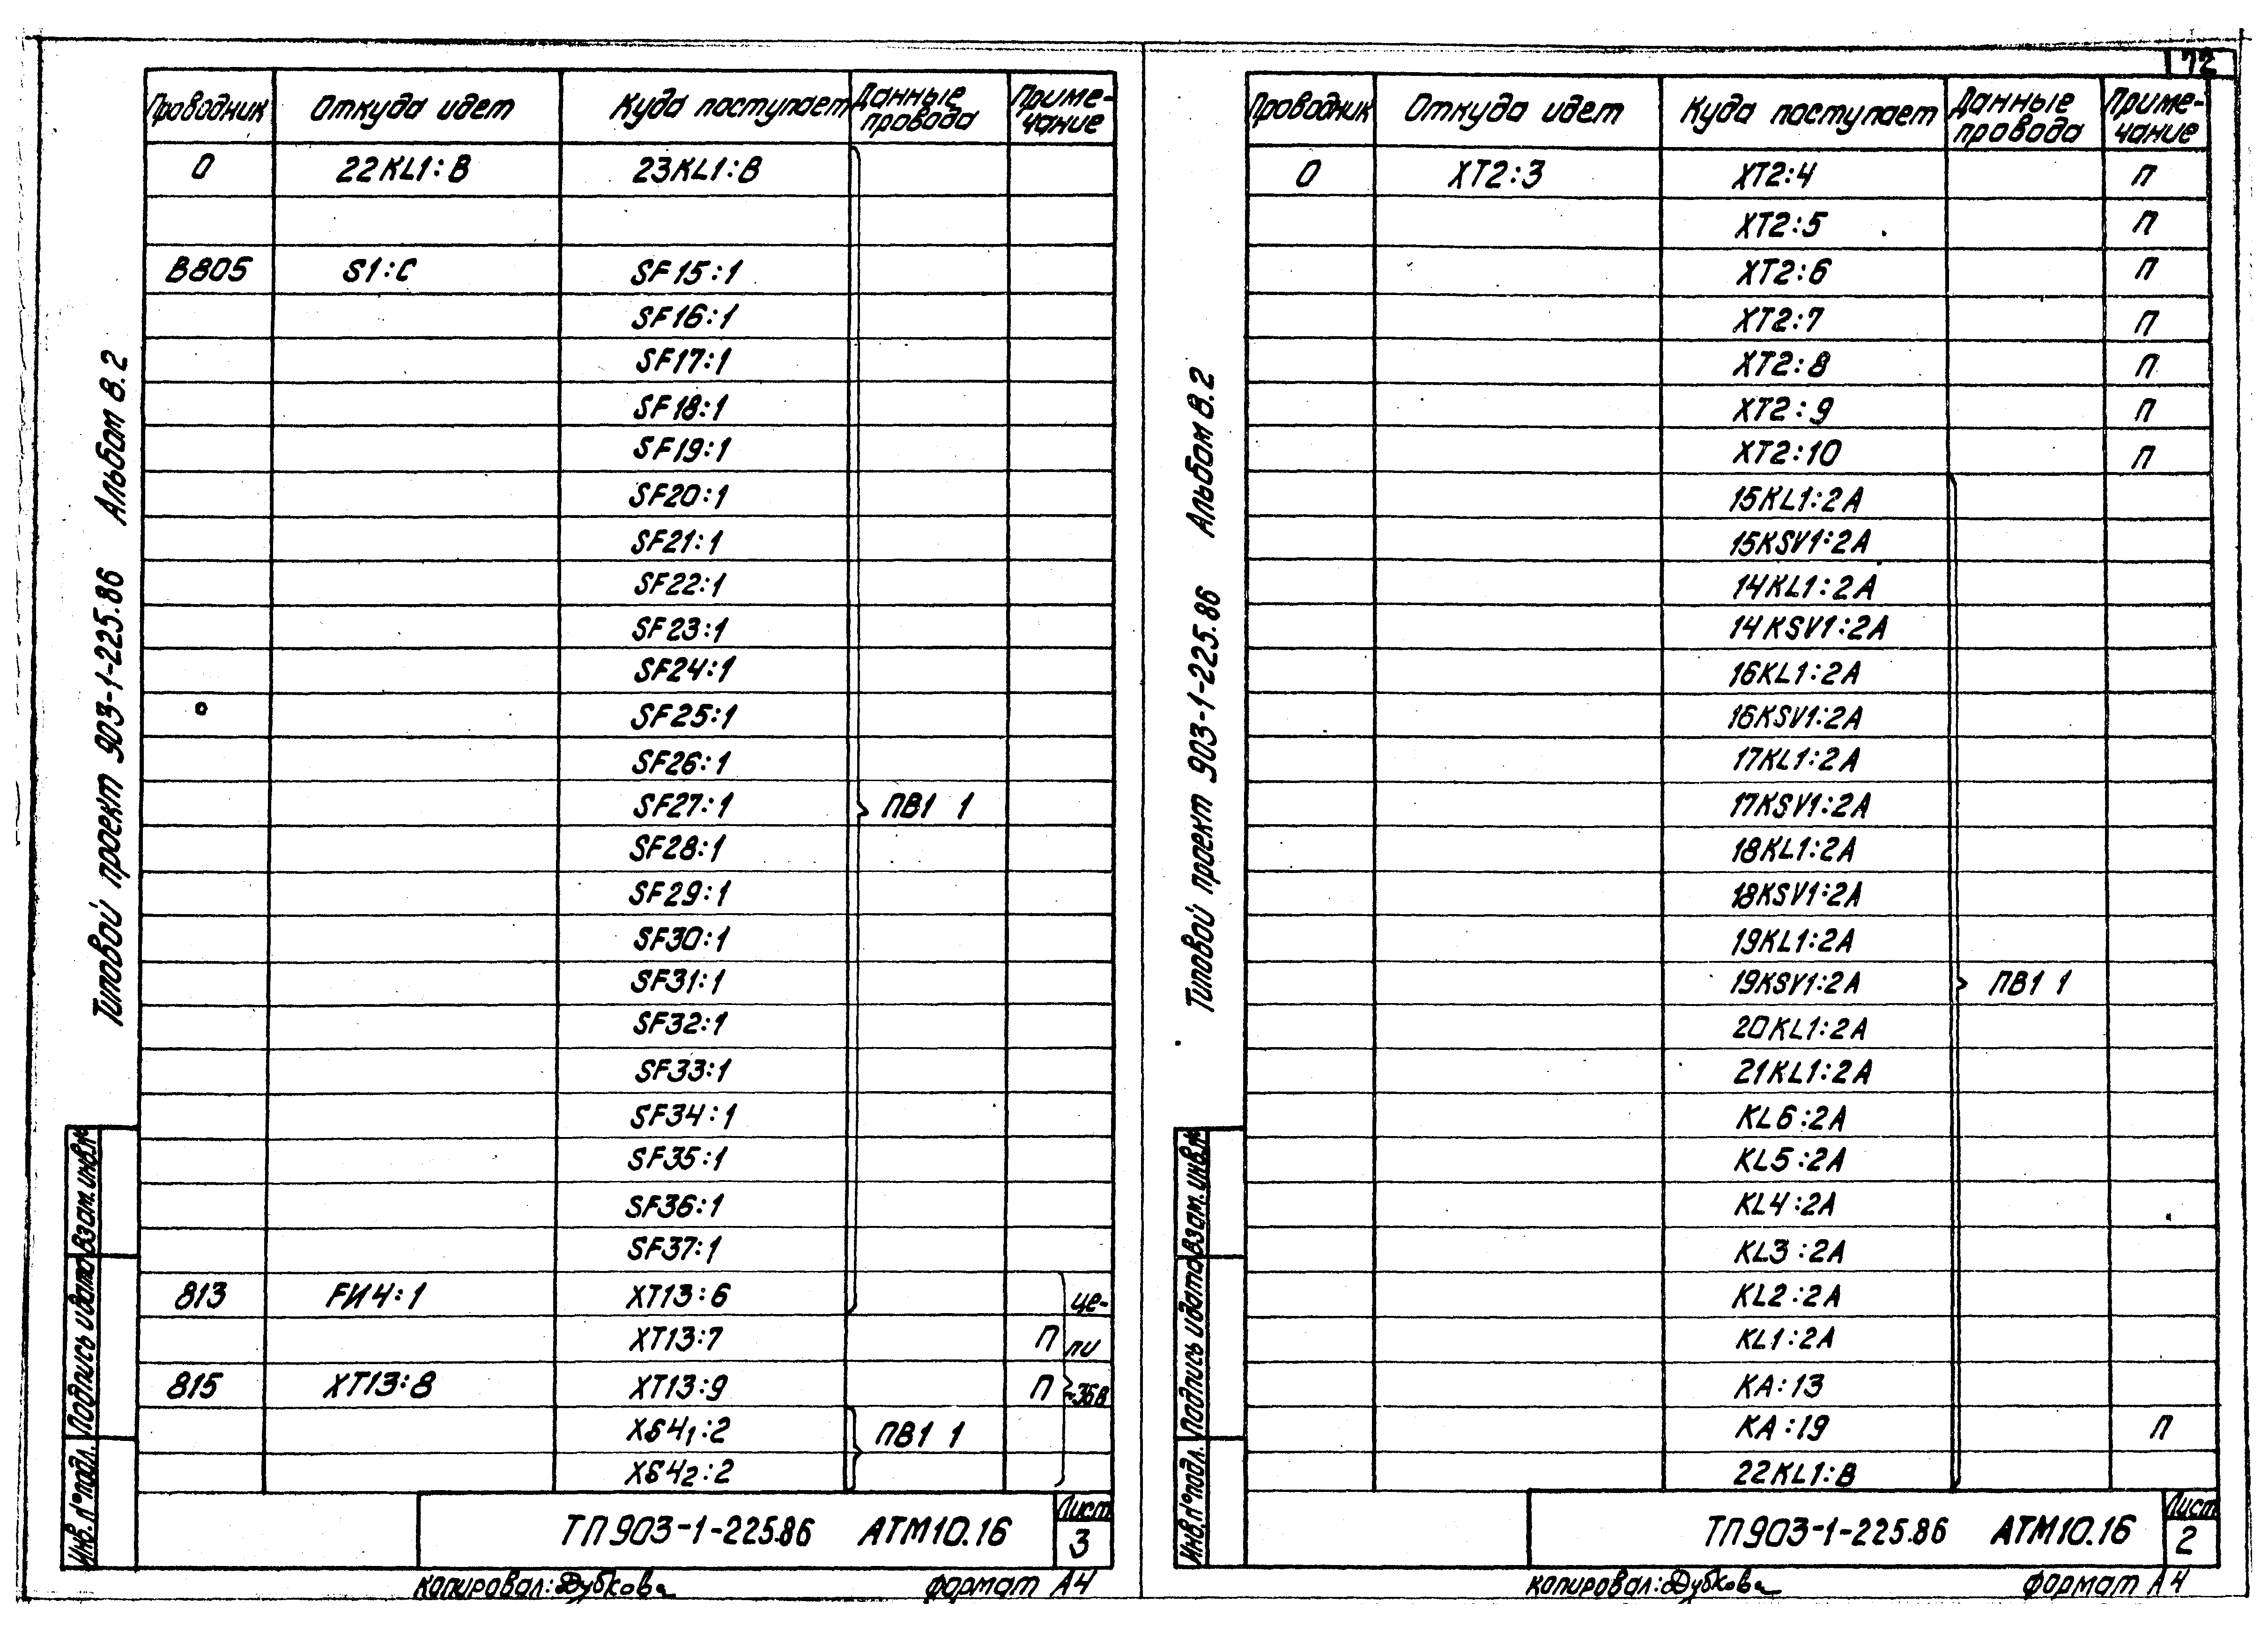 72
Проводник Откуда идет Куда поступает Данные провода Приме-чание
0 22KL1:B 23KL1:B
B805 S1:C SF15:1
SF16:1
SF17:1
SF18:1
SF19:1
SF20:1
SF21:1
SF22:1
SF23:1
SF24:1
SF25:1
SF26:1
SF27:1 ПВ1 1
SF28:1
SF29:1
SF30:1
SF31:1
SF32:1
SF33:1
SF34:1
SF35:1
SF36:1
SF37:1
813 FИ4:1 XT13:6 це-
XT13:7 П пи
815 XT13:8 XT13:9 П ~36в
XБ4₁:2 ПВ1 1
XБ4₂:2
ТП903-1-225.86 АТМ10.16 Лист 3
Копировал: Дубкова формат А4
Типовой проект 903-1-225.86 Альбом 8.2
Инв.№подл. Подпись и дата Взам.инв.№
Проводник Откуда идет Куда поступает Данные провода Приме-чание
0 XT2:3 XT2:4 П
XT2:5 П
XT2:6 П
XT2:7 П
XT2:8 П
XT2:9 П
XT2:10 П
15KL1:2A
15KSV1:2A
14KL1:2A
14KSV1:2A
16KL1:2A
16KSV1:2A
17KL1:2A
17KSV1:2A
18KL1:2A
18KSV1:2A
19KL1:2A
19KSV1:2A ПВ1 1
20KL1:2A
21KL1:2A
KL6:2A
KL5:2A
KL4:2A
KL3:2A
KL2:2A
KL1:2A
KA:13
KA:19 П
22KL1:B
ТП903-1-225.86 АТМ10.16 Лист 2
Копировал: Дубкова формат А4
Типовой проект 903-1-225.86 Альбом 8.2
Инв.№подл. Подпись и дата Взам.инв.№